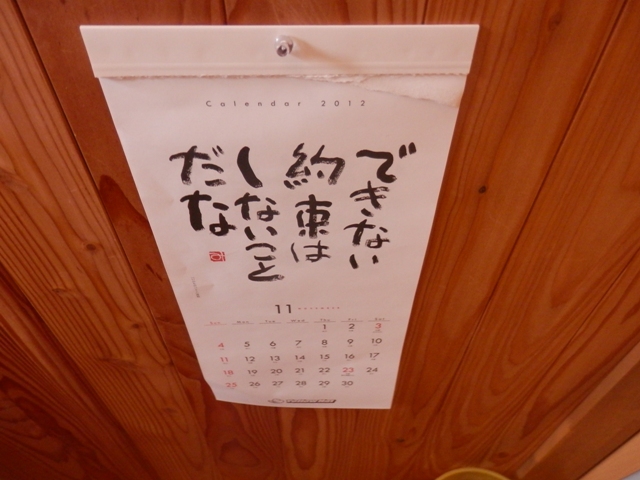 Calendar 2012
できない
約束は
しないこと
だな
11 NOVEMBER
Sun Mon Tue Wed Thu Fri Sat
1 2 3
4 5 6 7 8 9 10
11 12 13 14 15 16 17
18 19 20 21 22 23 24
25 26 27 28 29 30